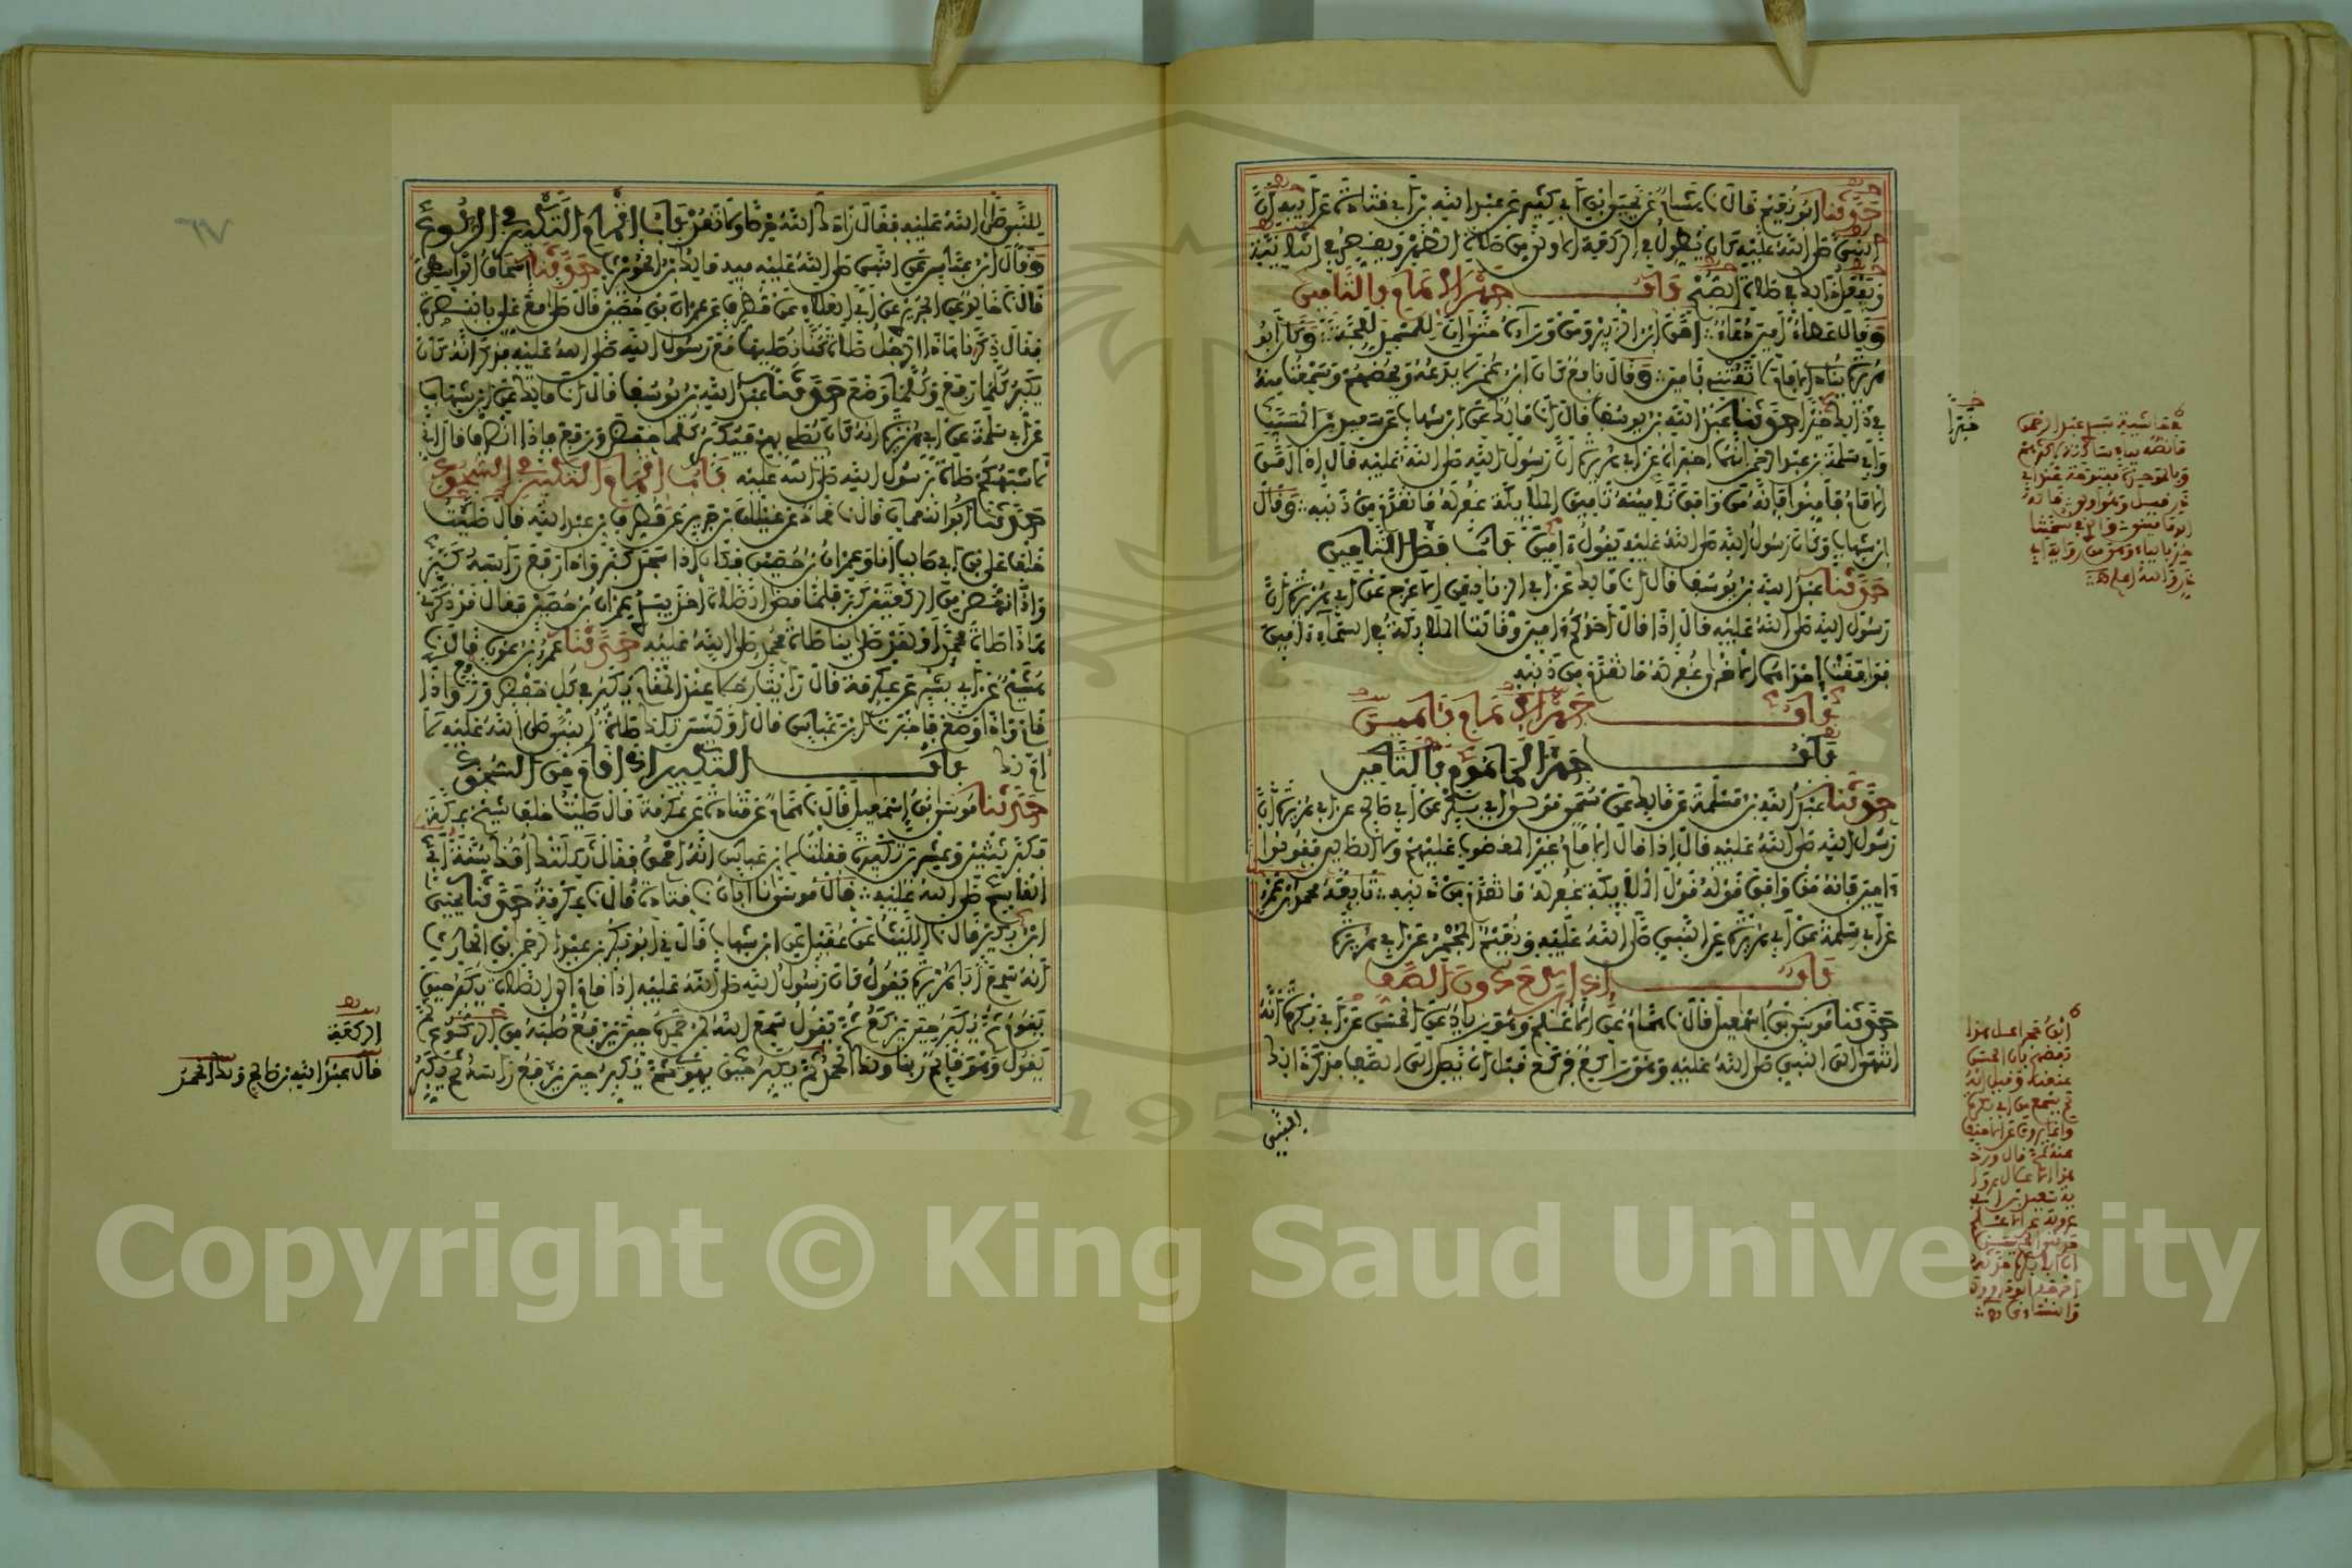 حدثنا ابو نعيم قال نا هشام عن يحيى بن ابي كثير عن عبد الله بن ابي قتادة عن ابيه ان
النبي صلى الله عليه كان يطول في الركعة الاولى من صلاة الظهر ويقصر في الثانية
ويفعل ذلك في صلاة الصبح باب جهر الامام بالتامين
وقال عطاء امين دعاء امن ابن الزبير ومن وراءه حتى ان للمسجد للجة وكان ابو
هريرة ينادي الامام لا تفتني بامين وقال نافع كان ابن عمر لا يدعه ويحضهم وسمعت منه
في ذلك خيرا حدثنا عبد الله بن يوسف قال انا مالك عن ابن شهاب عن سعيد بن المسيب
وابي سلمة بن عبد الرحمن انهما اخبراه عن ابي هريرة ان رسول الله صلى الله عليه قال اذا امن
الامام فامنوا فانه من وافق تامينه تامين الملايكة غفر له ما تقدم من ذنبه وقال
ابن شهاب وكان رسول الله صلى الله عليه يقول ءامين باب فضل التامين
حدثنا عبد الله بن يوسف قال انا مالك عن ابي الزناد عن الاعرج عن ابي هريرة ان
رسول الله صلى الله عليه قال اذا قال احدكم ءامين وقالت الملايكة في السماء ءامين
فوافقت احداهما الاخرى غفر له ما تقدم من ذنبه
باب جهر الامام بامين
باب جهر الماموم بالتامين
حدثنا عبد الله بن مسلمة عن مالك عن سمي مولى ابي بكر عن ابي صالح عن ابي هريرة ان
رسول الله صلى الله عليه قال اذا قال الامام غير المغضوب عليهم ولا الضالين فقولوا
ءامين فانه من وافق قوله قول الملايكة غفر له ما تقدم من ذنبه تابعه محمد بن عمرو
عن ابي سلمة عن ابي هريرة عن النبي صلى الله عليه ونعيم المجمر عن ابي هريرة
باب اذا ركع دون الصف
حدثنا موسى بن اسمعيل قال نا همام عن الاعلم وهو زياد عن الحسن عن ابي بكرة انه
انتهى الى النبي صلى الله عليه وهو راكع فركع قبل ان يصل الى الصف فذكر ذلك
للنبي
خيرا
للنبي صلى الله عليه فقال زادك الله حرصا ولا تعد باب اتمام التكبير في الركوع
وقال ابن عباس عن النبي صلى الله عليه فيه مالك بن الحويرث حدثنا اسحاق الواسطي
قال نا خالد عن الجريري عن ابي العلاء عن مطرف عن عمران بن حصين قال صلى مع علي بالبصرة
فقال ذكرنا هذا الرجل صلاة كنا نصليها مع رسول الله صلى الله عليه فذكر انه كان
يكبر كلما رفع وكلما وضع حدثنا عبد الله بن يوسف قال انا مالك عن ابن شهاب
عن ابي سلمة عن ابي هريرة انه كان يصلي بهم فيكبر كلما خفض ورفع فاذا انصرف قال اني
لاشبهكم صلاة برسول الله صلى الله عليه باب اتمام التكبير في السجود
حدثنا ابو النعمان قال نا حماد عن غيلان بن جرير عن مطرف بن عبد الله قال صليت
خلف علي بن ابي طالب انا وعمران بن حصين فكان اذا سجد كبر واذا رفع راسه كبر
واذا نهض من الركعتين كبر فلما قضى الصلاة اخذ بيدي عمران بن حصين فقال قد ذكرني
هذا صلاة محمد او لقد صلى بنا صلاة محمد صلى الله عليه حدثنا عمرو بن عون قال نا
هشيم عن ابي بشر عن عكرمة قال رايت رجلا عند المقام يكبر في كل خفض ورفع واذا
قام واذا وضع فاخبرت ابن عباس قال اوليس تلك صلاة النبي صلى الله عليه لا
ام لك باب التكبير اذا قام من السجود
حدثنا موسى بن اسمعيل قال نا همام عن قتادة عن عكرمة قال صليت خلف شيخ بمكة
فكبر ثنتين وعشرين تكبيرة فقلت لابن عباس انه احمق فقال ثكلتك امك سنة ابي
القاسم صلى الله عليه قال موسى نا ابان نا قتادة قال نا عكرمة حدثنا يحيى
ابن بكير قال نا الليث عن عقيل عن ابن شهاب قال اخبرني ابو بكر بن عبد الرحمن بن الحارث
انه سمع ابا هريرة يقول كان رسول الله صلى الله عليه اذا قام الى الصلاة يكبر حين
يقوم ثم يكبر حين يركع ثم يقول سمع الله لمن حمده حين يرفع صلبه من الركوع ثم
يقول وهو قائم ربنا ولك الحمد ثم يكبر حين يهوي ثم يكبر حين يرفع راسه ثم يكبر
الركعة
قال عبد الله بن صالح ولك الحمد
٦٧
Copyright © King Saud University
1957